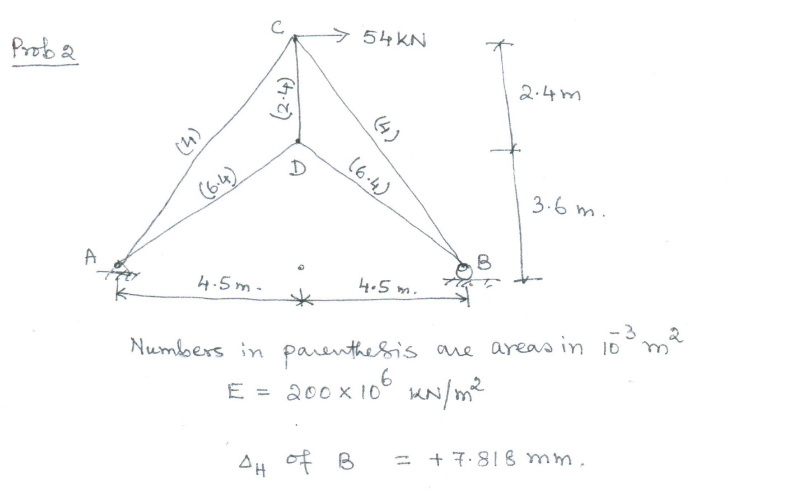 Prob 2
C
54 KN
2.4 m
(2.4)
(4)
(4)
D
(6.4)
(6.4)
3.6 m.
A
B
4.5 m.
4.5 m.
Numbers in parenthesis are areas in 10⁻³ m²
E = 200 × 10⁶ KN/m²
ΔH of B = + 7.818 mm.